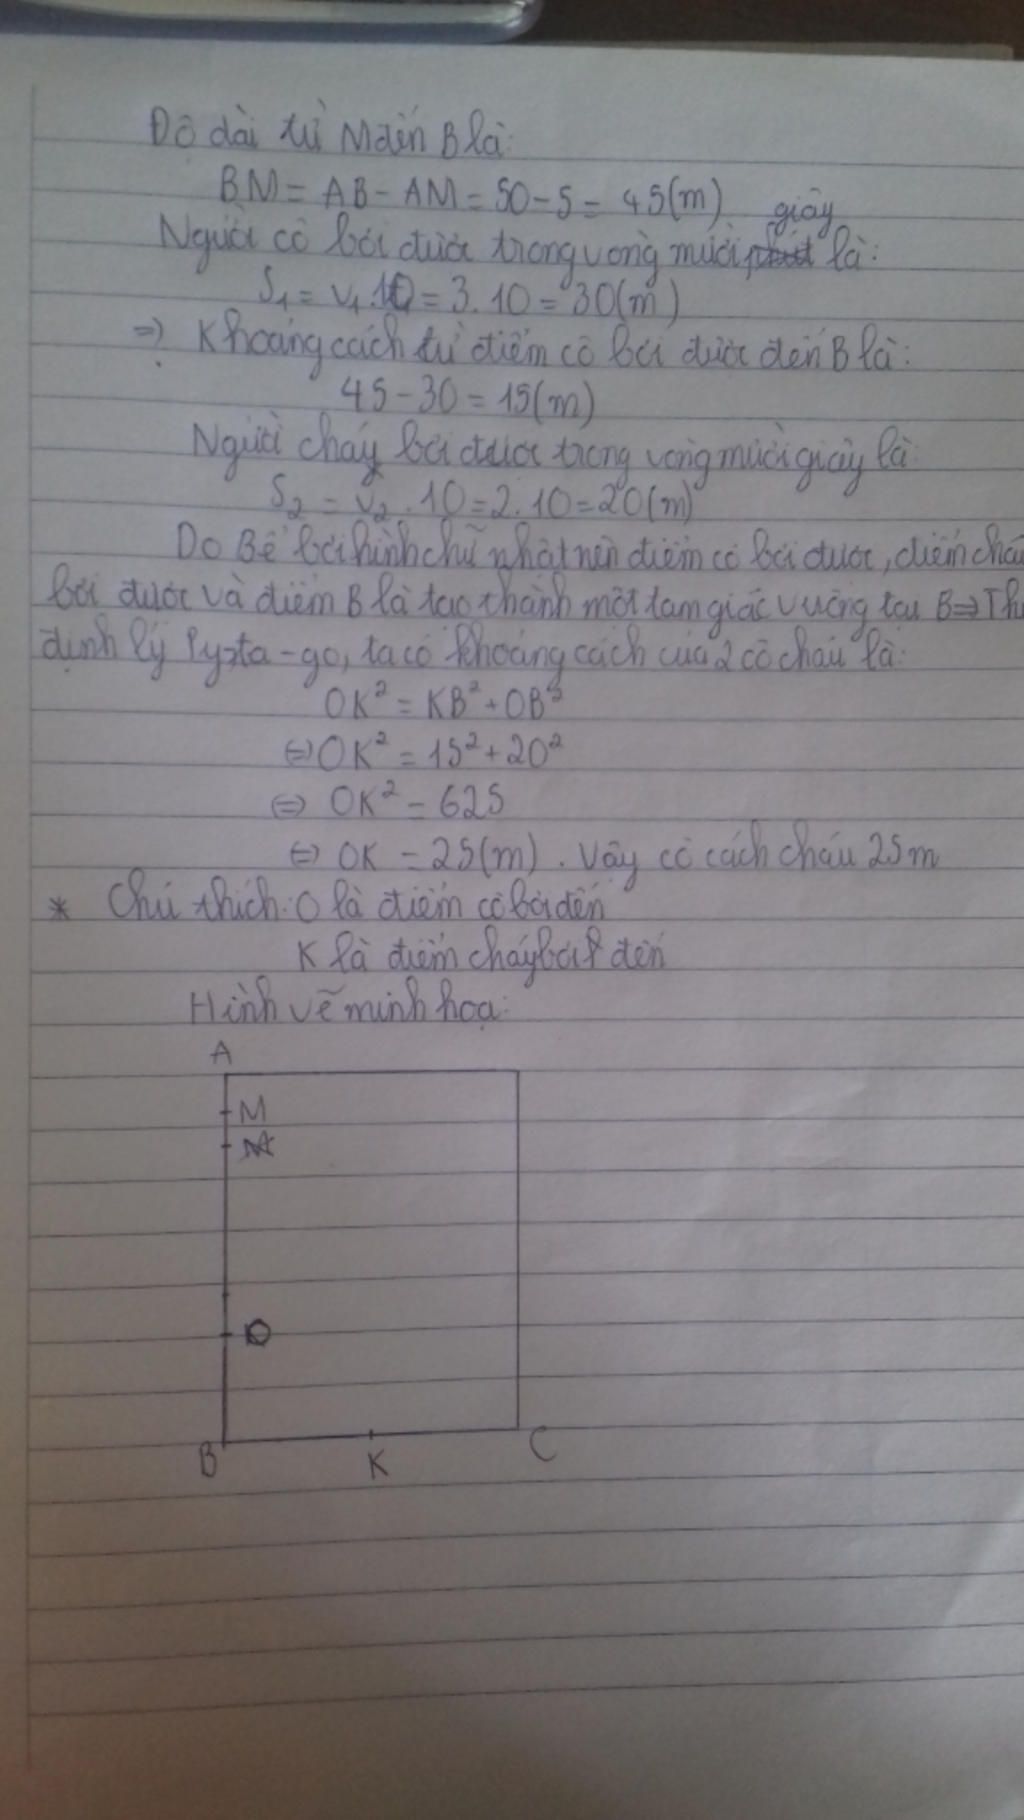 Độ dài từ M đến B là:
BM = AB - AM = 50 - 5 = 45(m)
giây
Người cô bơi được trong vòng mười phút là:
S₁ = v₁.10 = 3.10 = 30(m)
=> Khoảng cách từ điểm cô bơi được đến B là:
45 - 30 = 15(m)
Người cháy bơi được trong vòng mười giây là:
S₂ = v₂.10 = 2.10 = 20(m)
Do Bể bơi hình chữ nhật nên điểm cô bơi được, điểm chá
bơi được và điểm B là tạo thành một tam giác vuông tại B => Th
định lý Py-ta-go, ta có khoảng cách của 2 cô cháu là:
OK² = KB² + OB²
<=> OK² = 15² + 20²
<=> OK² = 625
<=> OK = 25(m). Vậy cô cách cháu 25m
* Chú thích: O là điểm cô bơi đến
K là điểm cháy bơi đến
Hình vẽ minh hoạ:
A
M
O
B
K
C